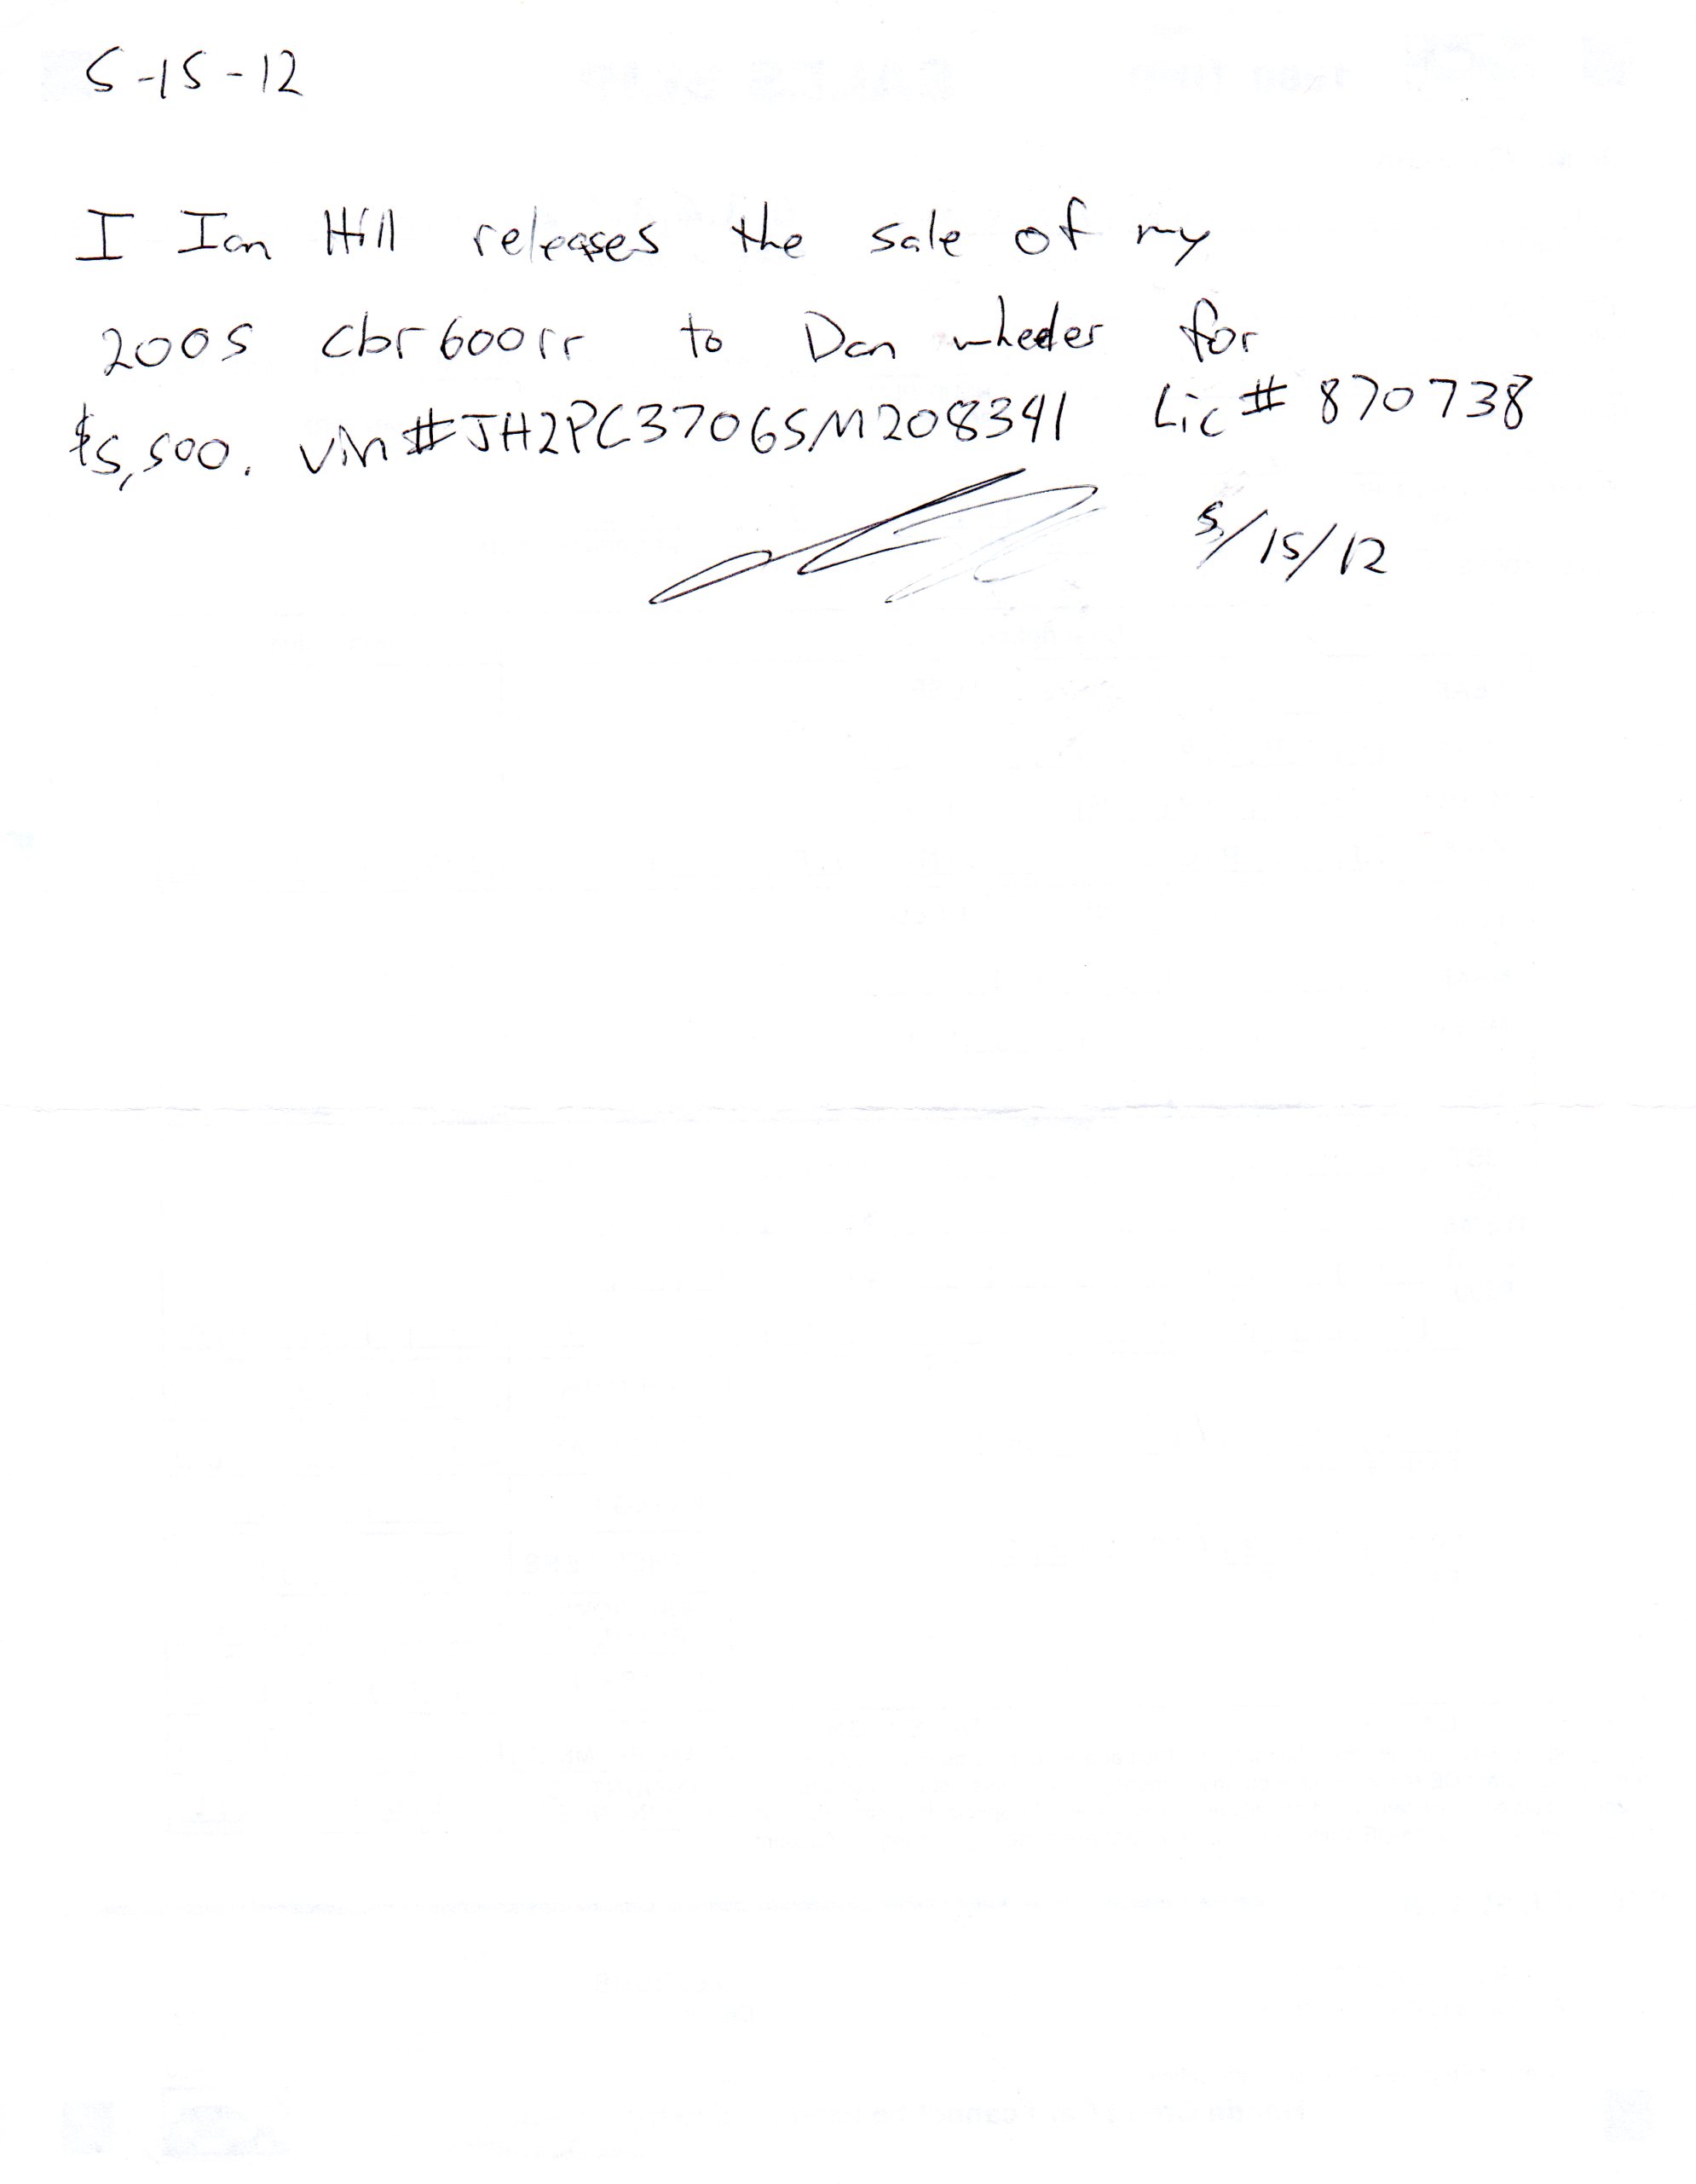 5-15-12
I Ian Hill releases the sale of my
2005 cbr600rr to Dan wheeler for
$5,500. vin#JH2PC37065M208341 Lic# 870738
5/15/12